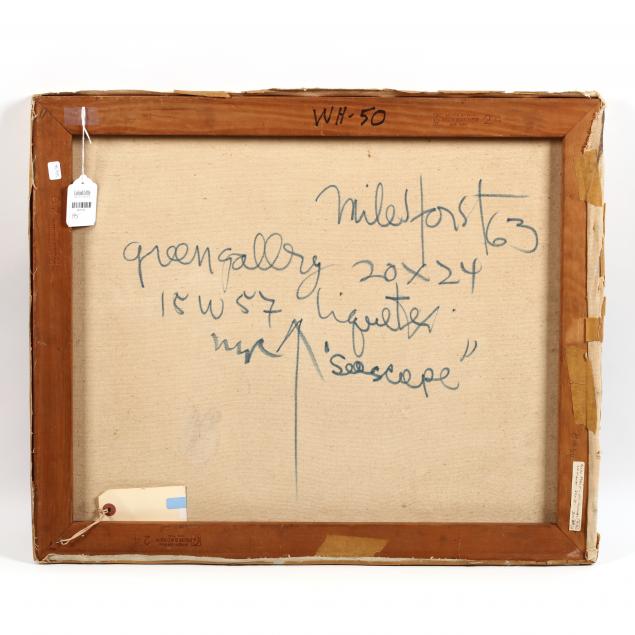 WH-50
miles forst 63
green gallery 20x24
15 W 57 liquitex
nyc "Seascape"
24
24